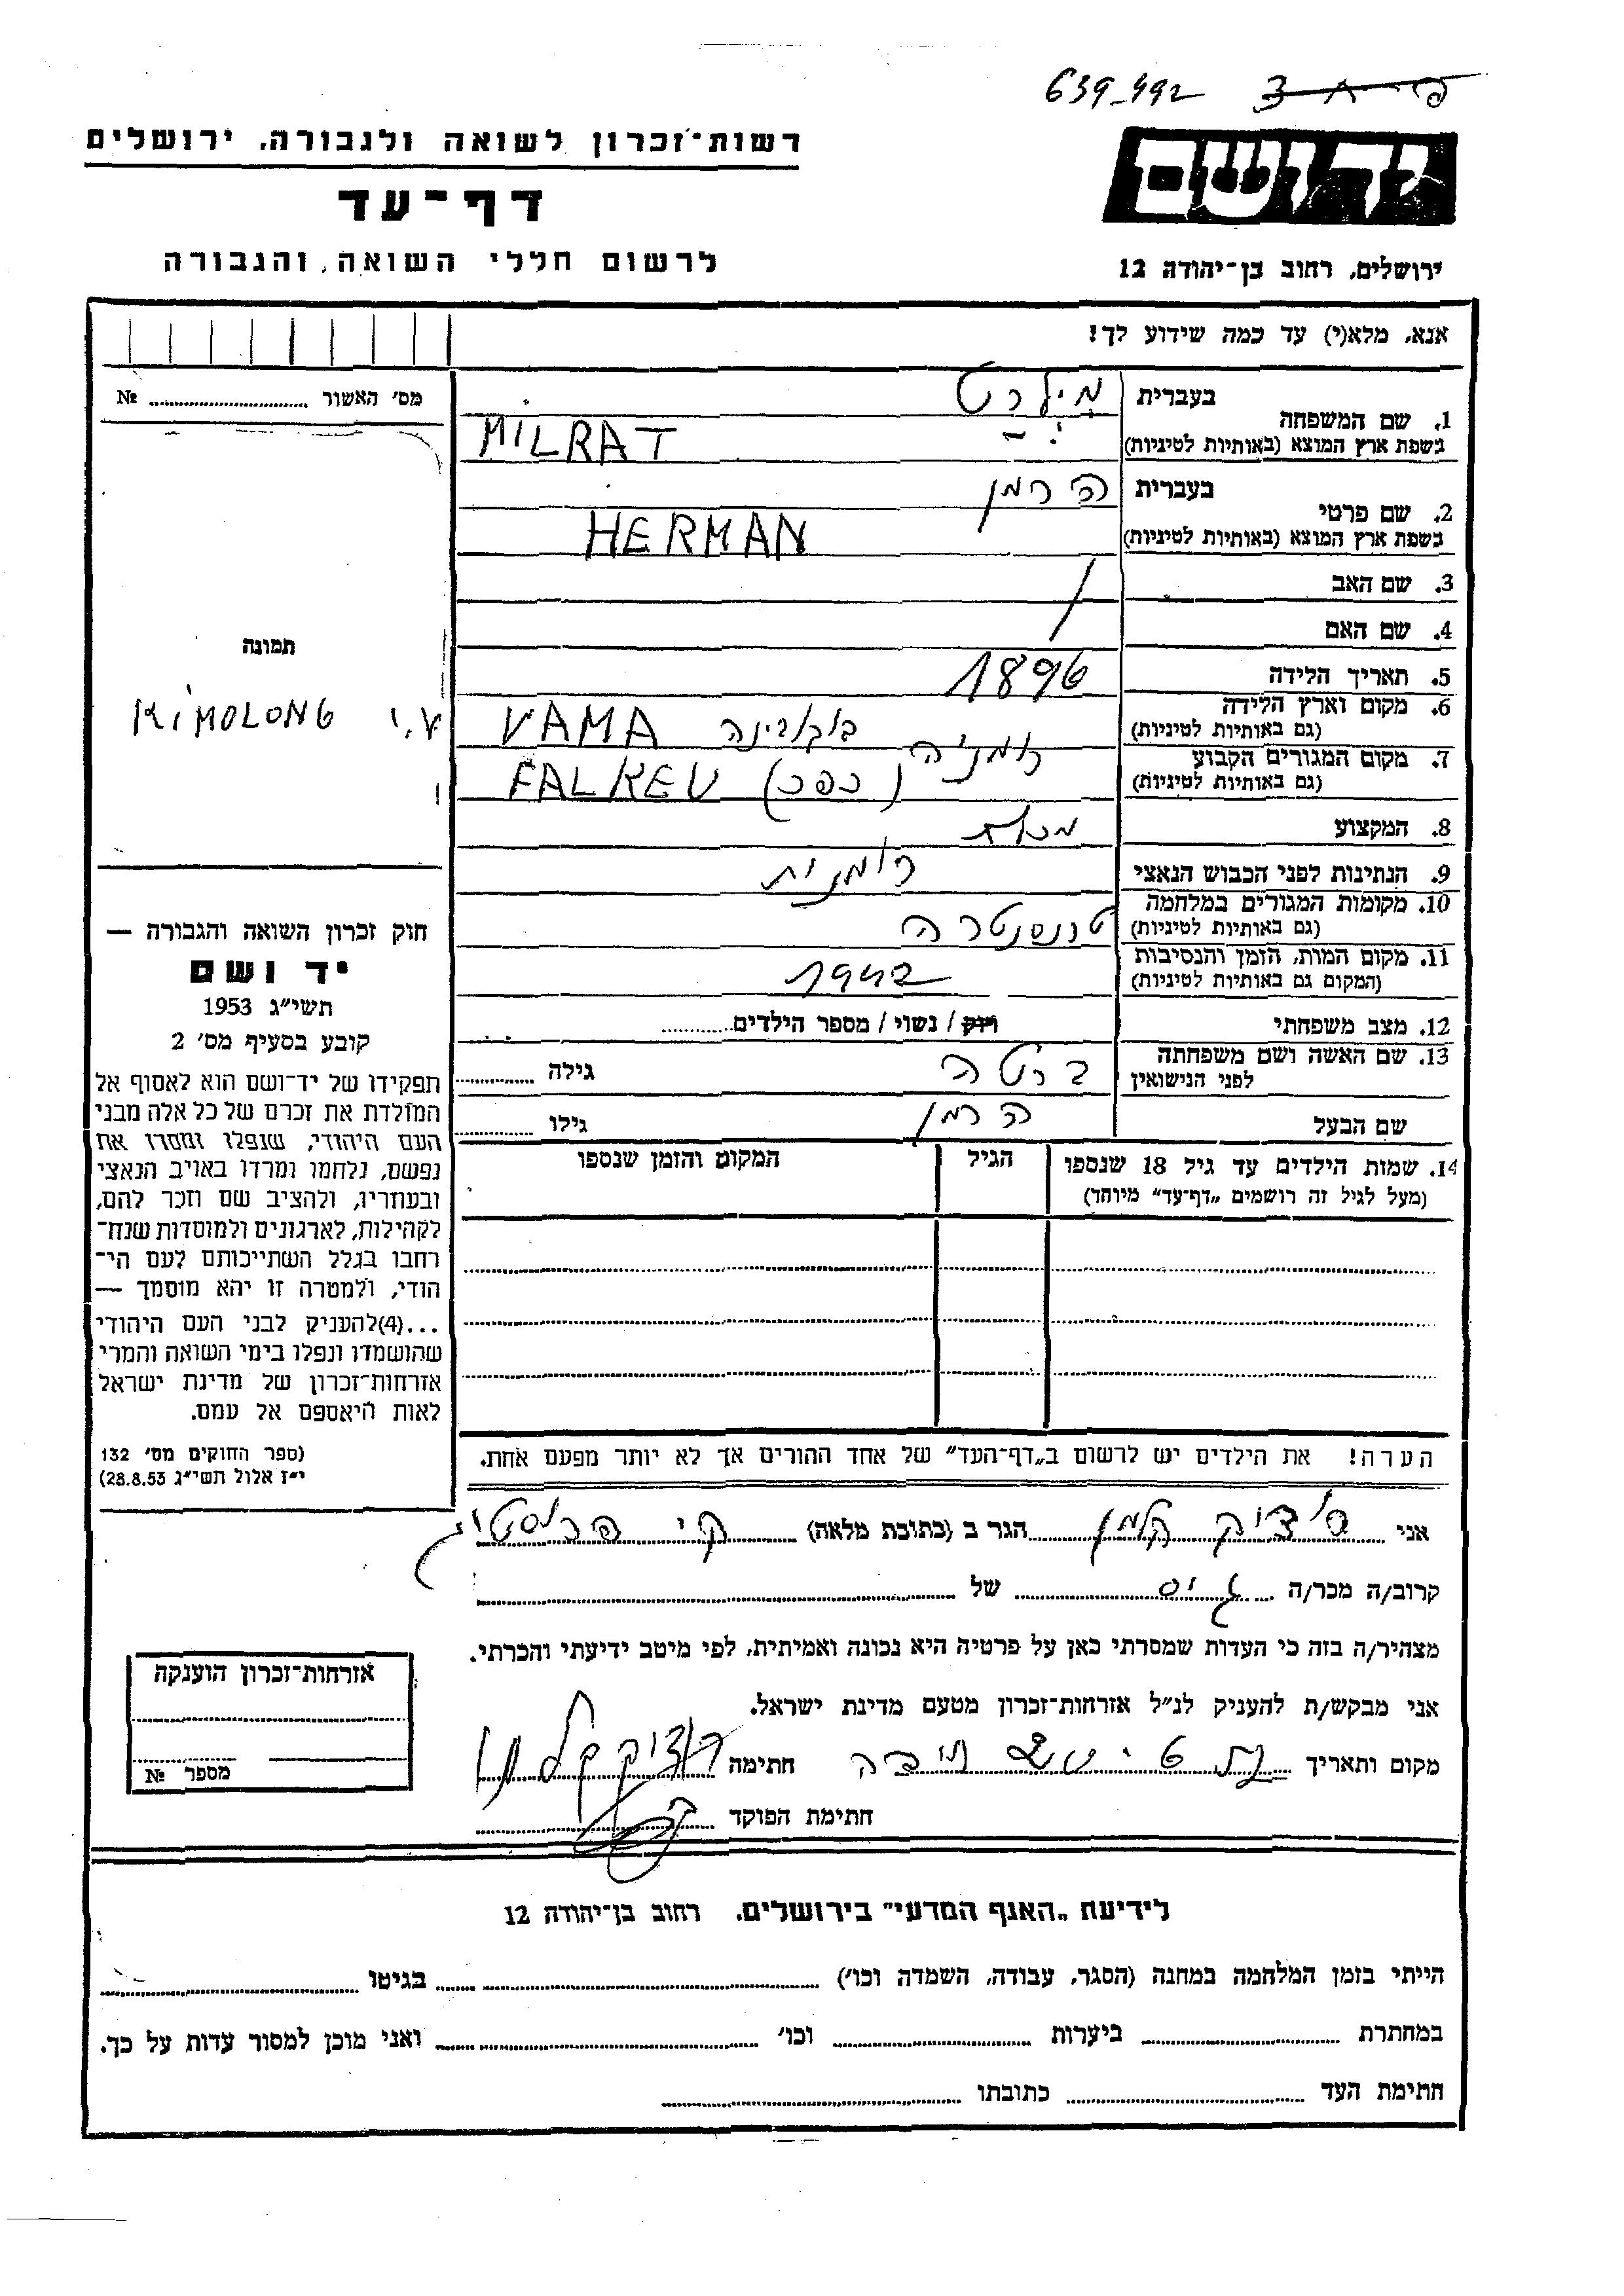 639-492
רשות-זכרון לשואה ולגבורה, ירושלים
יד ושם
דף-עד
לרשום חללי השואה והגבורה
ירושלים, רחוב בן-יהודה 12
אנא, מלא(י) עד כמה שידוע לך!
מס' האשור № 
1. שם המשפחה
בעברית מילרט
בשפת ארץ המוצא (באותיות לטיניות) MILRAT
2. שם פרטי
בעברית הרמן
בשפת ארץ המוצא (באותיות לטיניות) HERMAN
3. שם האב
4. שם האם
תמונה
5. תאריך הלידה 1896
6. מקום וארץ הלידה
(גם באותיות לטיניות) VAMA בוקובינה רומניה
KIMOLONG
7. מקום המגורים הקבוע
(גם באותיות לטיניות) FALKEU (כפר)
8. המקצוע
9. הנתינות לפני הכבוש הנאצי רומנית
10. מקומות המגורים במלחמה
(גם באותיות לטיניות)
11. מקום המות, הזמן והנסיבות
(המקום גם באותיות לטיניות) 1942
12. מצב משפחתי רווק / נשוי / מספר הילדים
13. שם האשה ושם משפחתה
לפני הנישואין ברטה גילה
שם הבעל הרמן גילו
14. שמות הילדים עד גיל 18 שנספו הגיל המקום והזמן שנספו
(מעל לגיל זה רושמים "דף-עד" מיוחד)
הערה! את הילדים יש לרשום ב"דף-העד" של אחד ההורים אך לא יותר מפעם אחת.
חוק זכרון השואה והגבורה —
יד ושם
תשי"ג 1953
קובע בסעיף מס' 2
תפקידו של יד-ושם הוא לאסוף אל
המולדת את זכרם של כל אלה מבני
העם היהודי, שנפלו ומסרו את
נפשם, נלחמו ומרדו באויב הנאצי
ובעוזריו, ולהציב שם וזכר להם,
לקהילות, לארגונים ולמוסדות שנח-
רבו בגלל השתייכותם לעם הי-
הודי, ולמטרה זו יהא מוסמך —
...(4)להעניק לבני העם היהודי
שהושמדו ונפלו בימי השואה והמרי
אזרחות-זכרון של מדינת ישראל
לאות היאספם אל עמם.
(ספר החוקים מס' 132
י"ז אלול תשי"ג 28.8.53)
אני קלמן הגר ב (כתובת מלאה)
קרוב/ה מכר/ה גיס של
מצהיר/ה בזה כי העדות שמסרתי כאן על פרטיה היא נכונה ואמיתית, לפי מיטב ידיעתי והכרתי.
אני מבקש/ת להעניק לנ"ל אזרחות-זכרון מטעם מדינת ישראל.
מקום ותאריך חתימה
חתימת הפוקד
אזרחות-זכרון הוענקה
מספר №
לידיעת "האגף המדעי" בירושלים, רחוב בן-יהודה 12
הייתי בזמן המלחמה במחנה (הסגר, עבודה, השמדה וכו') בגיטו
במחתרת ביערות וכו' ואני מוכן למסור עדות על כך.
חתימת העד כתובתו